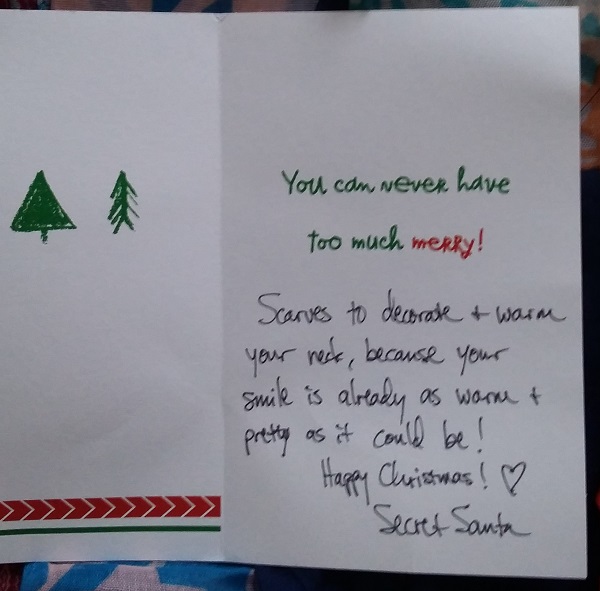 You can never have
too much merry!
Scarves to decorate + warm
your neck, because your
smile is already as warm +
pretty as it could be!
Happy Chrismas! ♡
Secret Santa